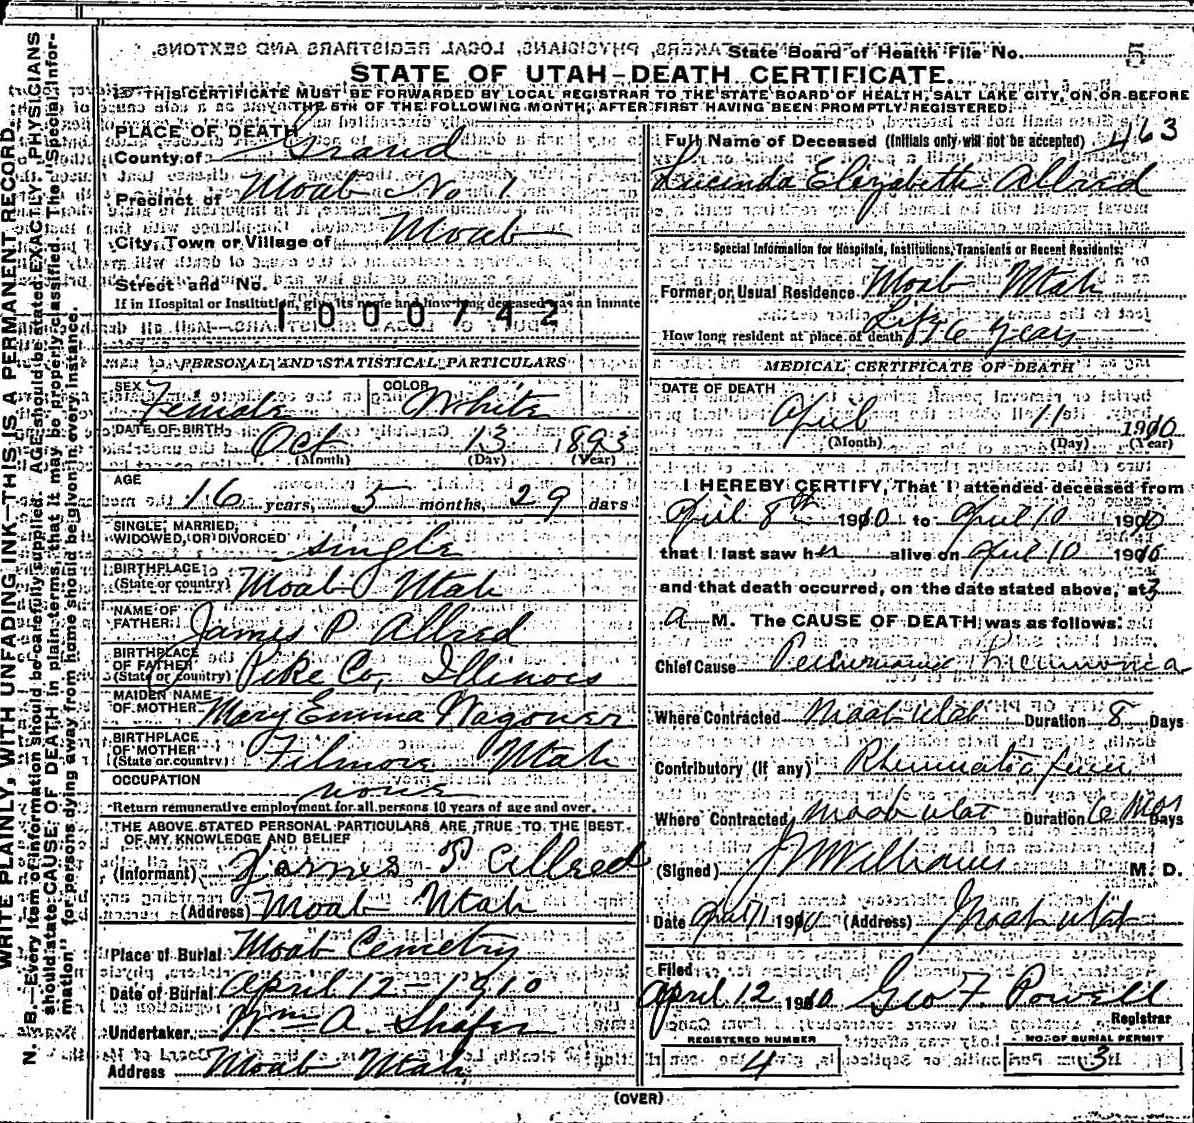 State Board of Health File No. 5
STATE OF UTAH—DEATH CERTIFICATE.
THIS CERTIFICATE MUST BE FORWARDED BY LOCAL REGISTRAR TO THE STATE BOARD OF HEALTH, SALT LAKE CITY, ON OR BEFORE
THE 5TH OF THE FOLLOWING MONTH, AFTER FIRST HAVING BEEN PROMPTLY REGISTERED.
WRITE PLAINLY, WITH UNFADING INK—THIS IS A PERMANENT RECORD.
N. B.—Every item of information should be carefully supplied. AGE should be stated EXACTLY. PHYSICIANS
should state CAUSE OF DEATH in plain terms, that it may be properly classified. The "Special Infor-
mation" for persons dying away from home should be given in every instance.
PLACE OF DEATH
County of Grand
Precinct of Moab No 1
City, Town or Village of Moab
Street and No.
If in Hospital or Institution, give its name and how long deceased was an inmate
1000742
PERSONAL AND STATISTICAL PARTICULARS
SEX Female COLOR White
DATE OF BIRTH Oct 13 1893
(Month) (Day) (Year)
AGE 16 years, 5 months, 29 days
SINGLE, MARRIED,
WIDOWED, OR DIVORCED single
BIRTHPLACE
(State or country) Moab Utah
NAME OF
FATHER James P Allred
BIRTHPLACE
OF FATHER
(State or country) Pike Co, Illinois
MAIDEN NAME
OF MOTHER Mary Emma Wagoner
BIRTHPLACE
OF MOTHER
(State or country) Filmore Utah
OCCUPATION none
Return remunerative employment for all persons 10 years of age and over.
THE ABOVE STATED PERSONAL PARTICULARS ARE TRUE TO THE BEST
OF MY KNOWLEDGE AND BELIEF
(Informant) James P Allred
(Address) Moab Utah
Place of Burial Moab Cemetry
Date of Burial April 12 - 1910
Undertaker Wm A. Shafer
Address Moab Utah
Full Name of Deceased (Initials only will not be accepted) 463
Lucinda Elizabeth Allred
Special Information for Hospitals, Institutions, Transients or Recent Residents:
Former or Usual Residence Moab Utah
How long resident at place of death Life 16 years
MEDICAL CERTIFICATE OF DEATH
DATE OF DEATH
April 11 1910
(Month) (Day) (Year)
I HEREBY CERTIFY, That I attended deceased from
April 8th 1910 to April 10 1910
that I last saw her alive on April 10 1910
and that death occurred, on the date stated above, at 3
a M. The CAUSE OF DEATH was as follows:
Chief Cause Pneumonia
Where Contracted Moab Utah Duration 8 Days
Contributory (if any) Rheumatic fever
Where Contracted Moab Utah Duration 6 Mos Days
(Signed) J W Williams M. D.
Date April 11 1910 (Address) Moab Utah
Filed
April 12 1910 Geo F. Powell
Registrar
REGISTERED NUMBER
4
NO. OF BURIAL PERMIT
3
(OVER)